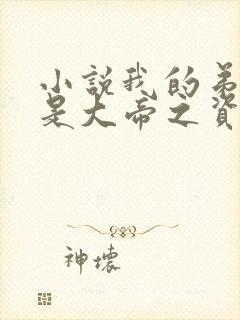 小説我的弟
是大帝之資
神壞